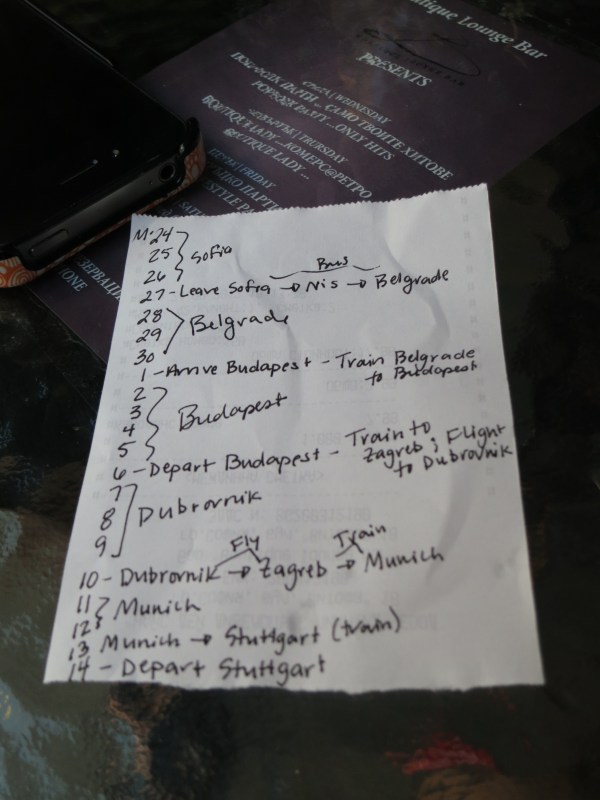 Boutique Lounge Bar
PRESENTS
СРЯДА | WEDNESDAY
ПОП-ФОЛК ПАРТИ ... САМО ТВОИТЕ ХИТОВЕ
ONLY HITS
ЧЕТВЪРТЪК | THURSDAY
BOUTIQUE LADY ... КОМЕРС@РЕТРО
BOUTIQUE LADY ...
ПЕТЪК | FRIDAY
M·24
25 } Sofia
26
27 - Leave Sofia → Nis → Belgrade
Bus
28
29 } Belgrade
30
1 - Arrive Budapest - Train Belgrade
to Budapest
2
3 } Budapest
4
5
6 - Depart Budapest - Train to
Zagreb; Flight
to Dubrovnik
7
8 ] Dubrovnik
9
Fly Train
10 - Dubrovnik → Zagreb → Munich
11 } Munich
12
13 Munich → Stuttgart (train)
14 - Depart Stuttgart